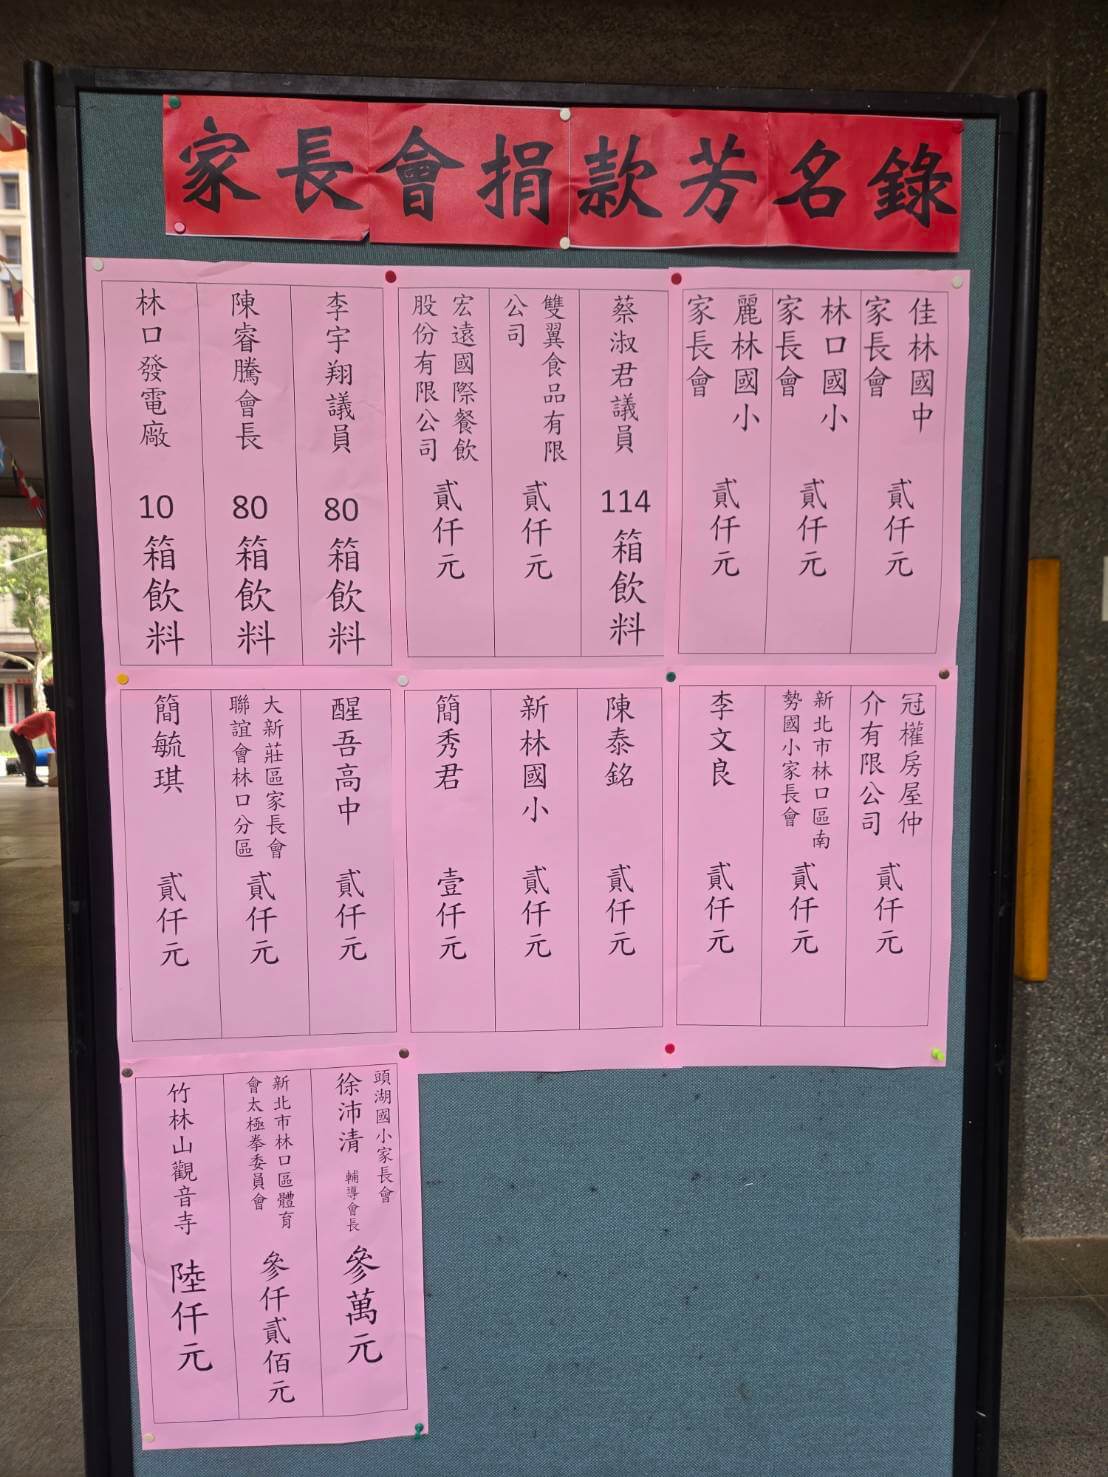 家長會捐款芳名錄
佳林國中
家長會
貳仟元
林口國小
家長會
貳仟元
麗林國小
家長會
貳仟元
蔡淑君議員
114
箱飲料
雙翼食品有限
公司
貳仟元
宏遠國際餐飲
股份有限公司
貳仟元
李宇翔議員
80
箱飲料
陳睿騰會長
80
箱飲料
林口發電廠
10
箱飲料
冠權房屋仲
介有限公司
貳仟元
新北市林口區南
勢國小家長會
貳仟元
李文良
貳仟元
陳泰銘
貳仟元
新林國小
貳仟元
簡秀君
壹仟元
醒吾高中
貳仟元
大新莊區家長會
聯誼會林口分區
貳仟元
簡毓琪
貳仟元
頭湖國小家長會
徐沛清 輔導會長
參萬元
新北市林口區體育
會太極拳委員會
參仟貳佰元
竹林山觀音寺
陸仟元